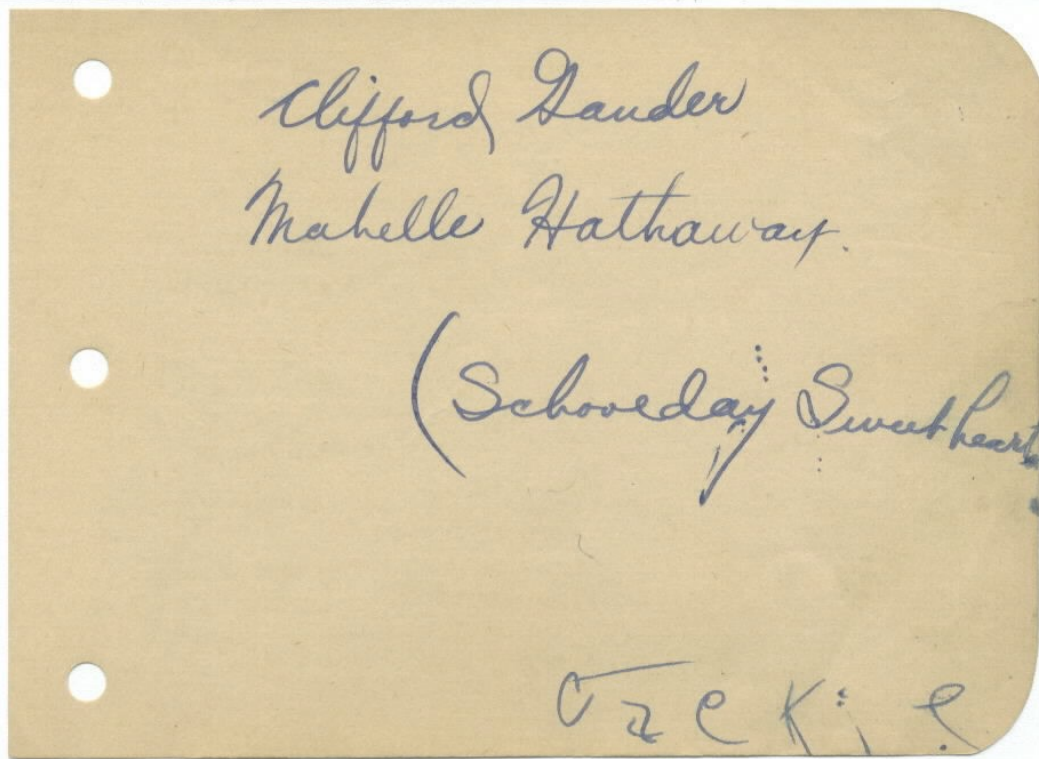 Clifford Gander
Mabelle Hathaway.
(Schooleday Sweetheart
Jackie